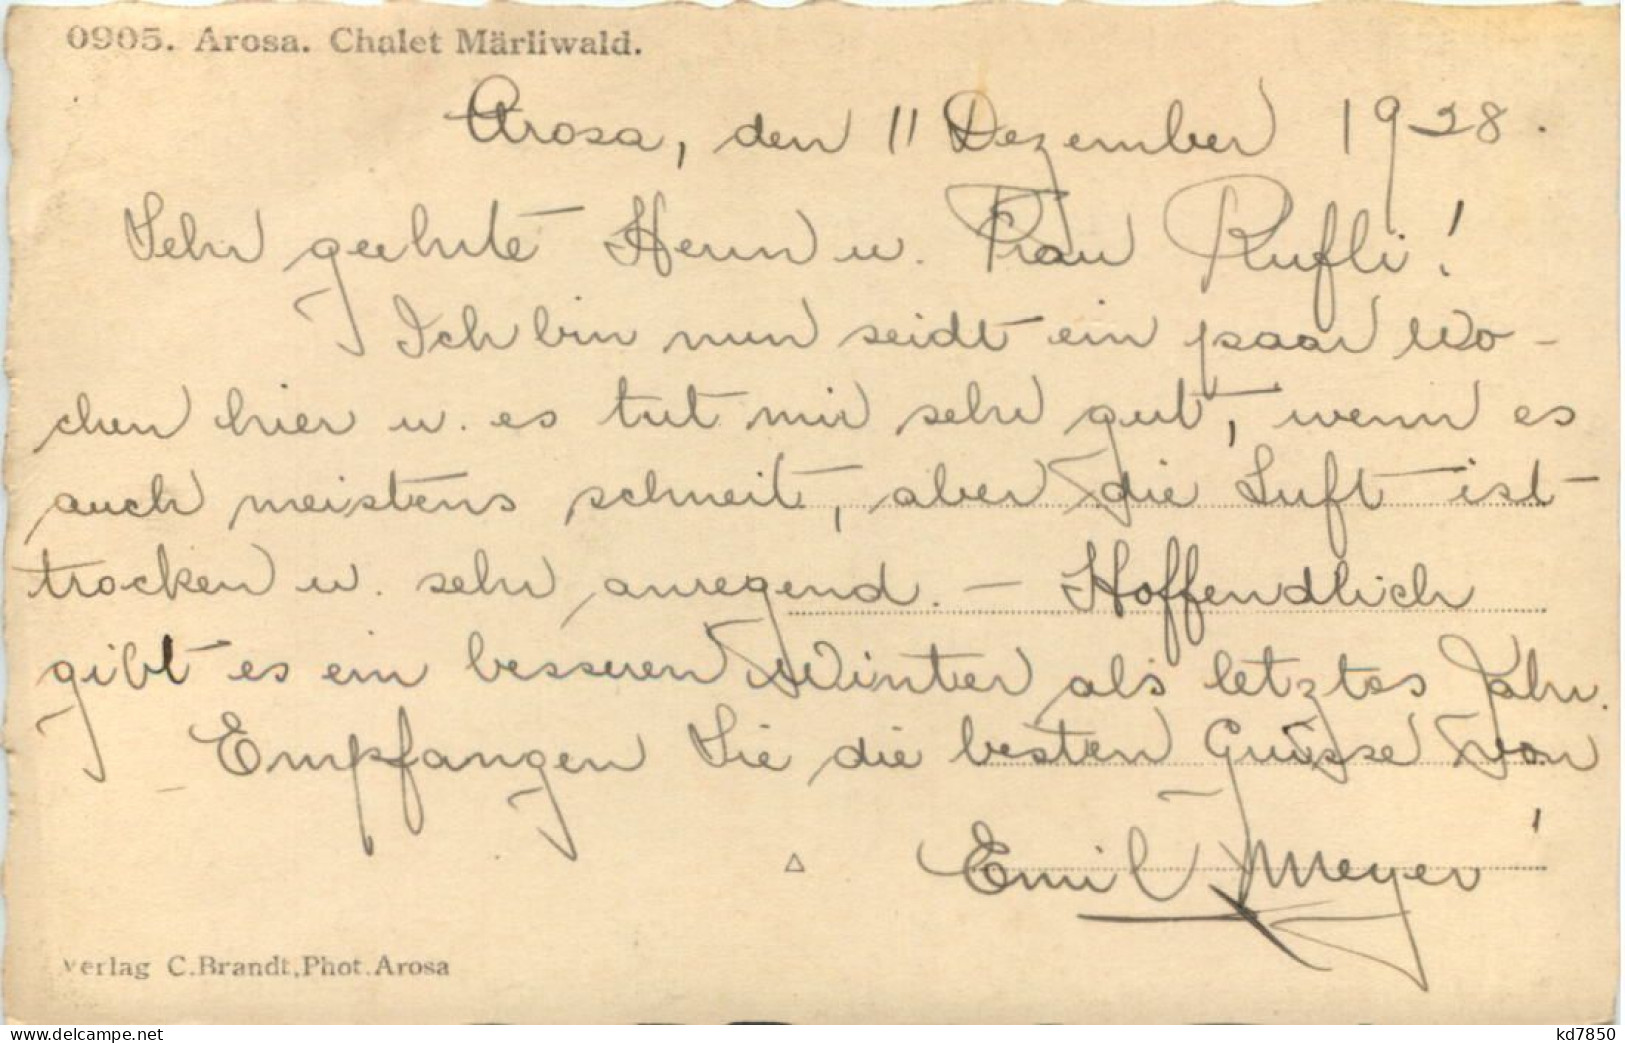 0905. Arosa. Chalet Märliwald.
Arosa, den 11 Dezember 1928.
Sehr geehrte Herrn u. Frau Rufli!
Ich bin nun seidt ein paar Wo-
chen hier u. es tut mir sehr gut, wenn es
auch meistens schneit, aber die Luft ist
trocken u. sehr anregend. – Hoffendlich
gibt es ein besseren Winter als letztes Jahr.
Empfangen Sie die besten Grüsse von
Emil Meyer
Verlag C. Brandt, Phot. Arosa
www.delcampe.net
kd7850